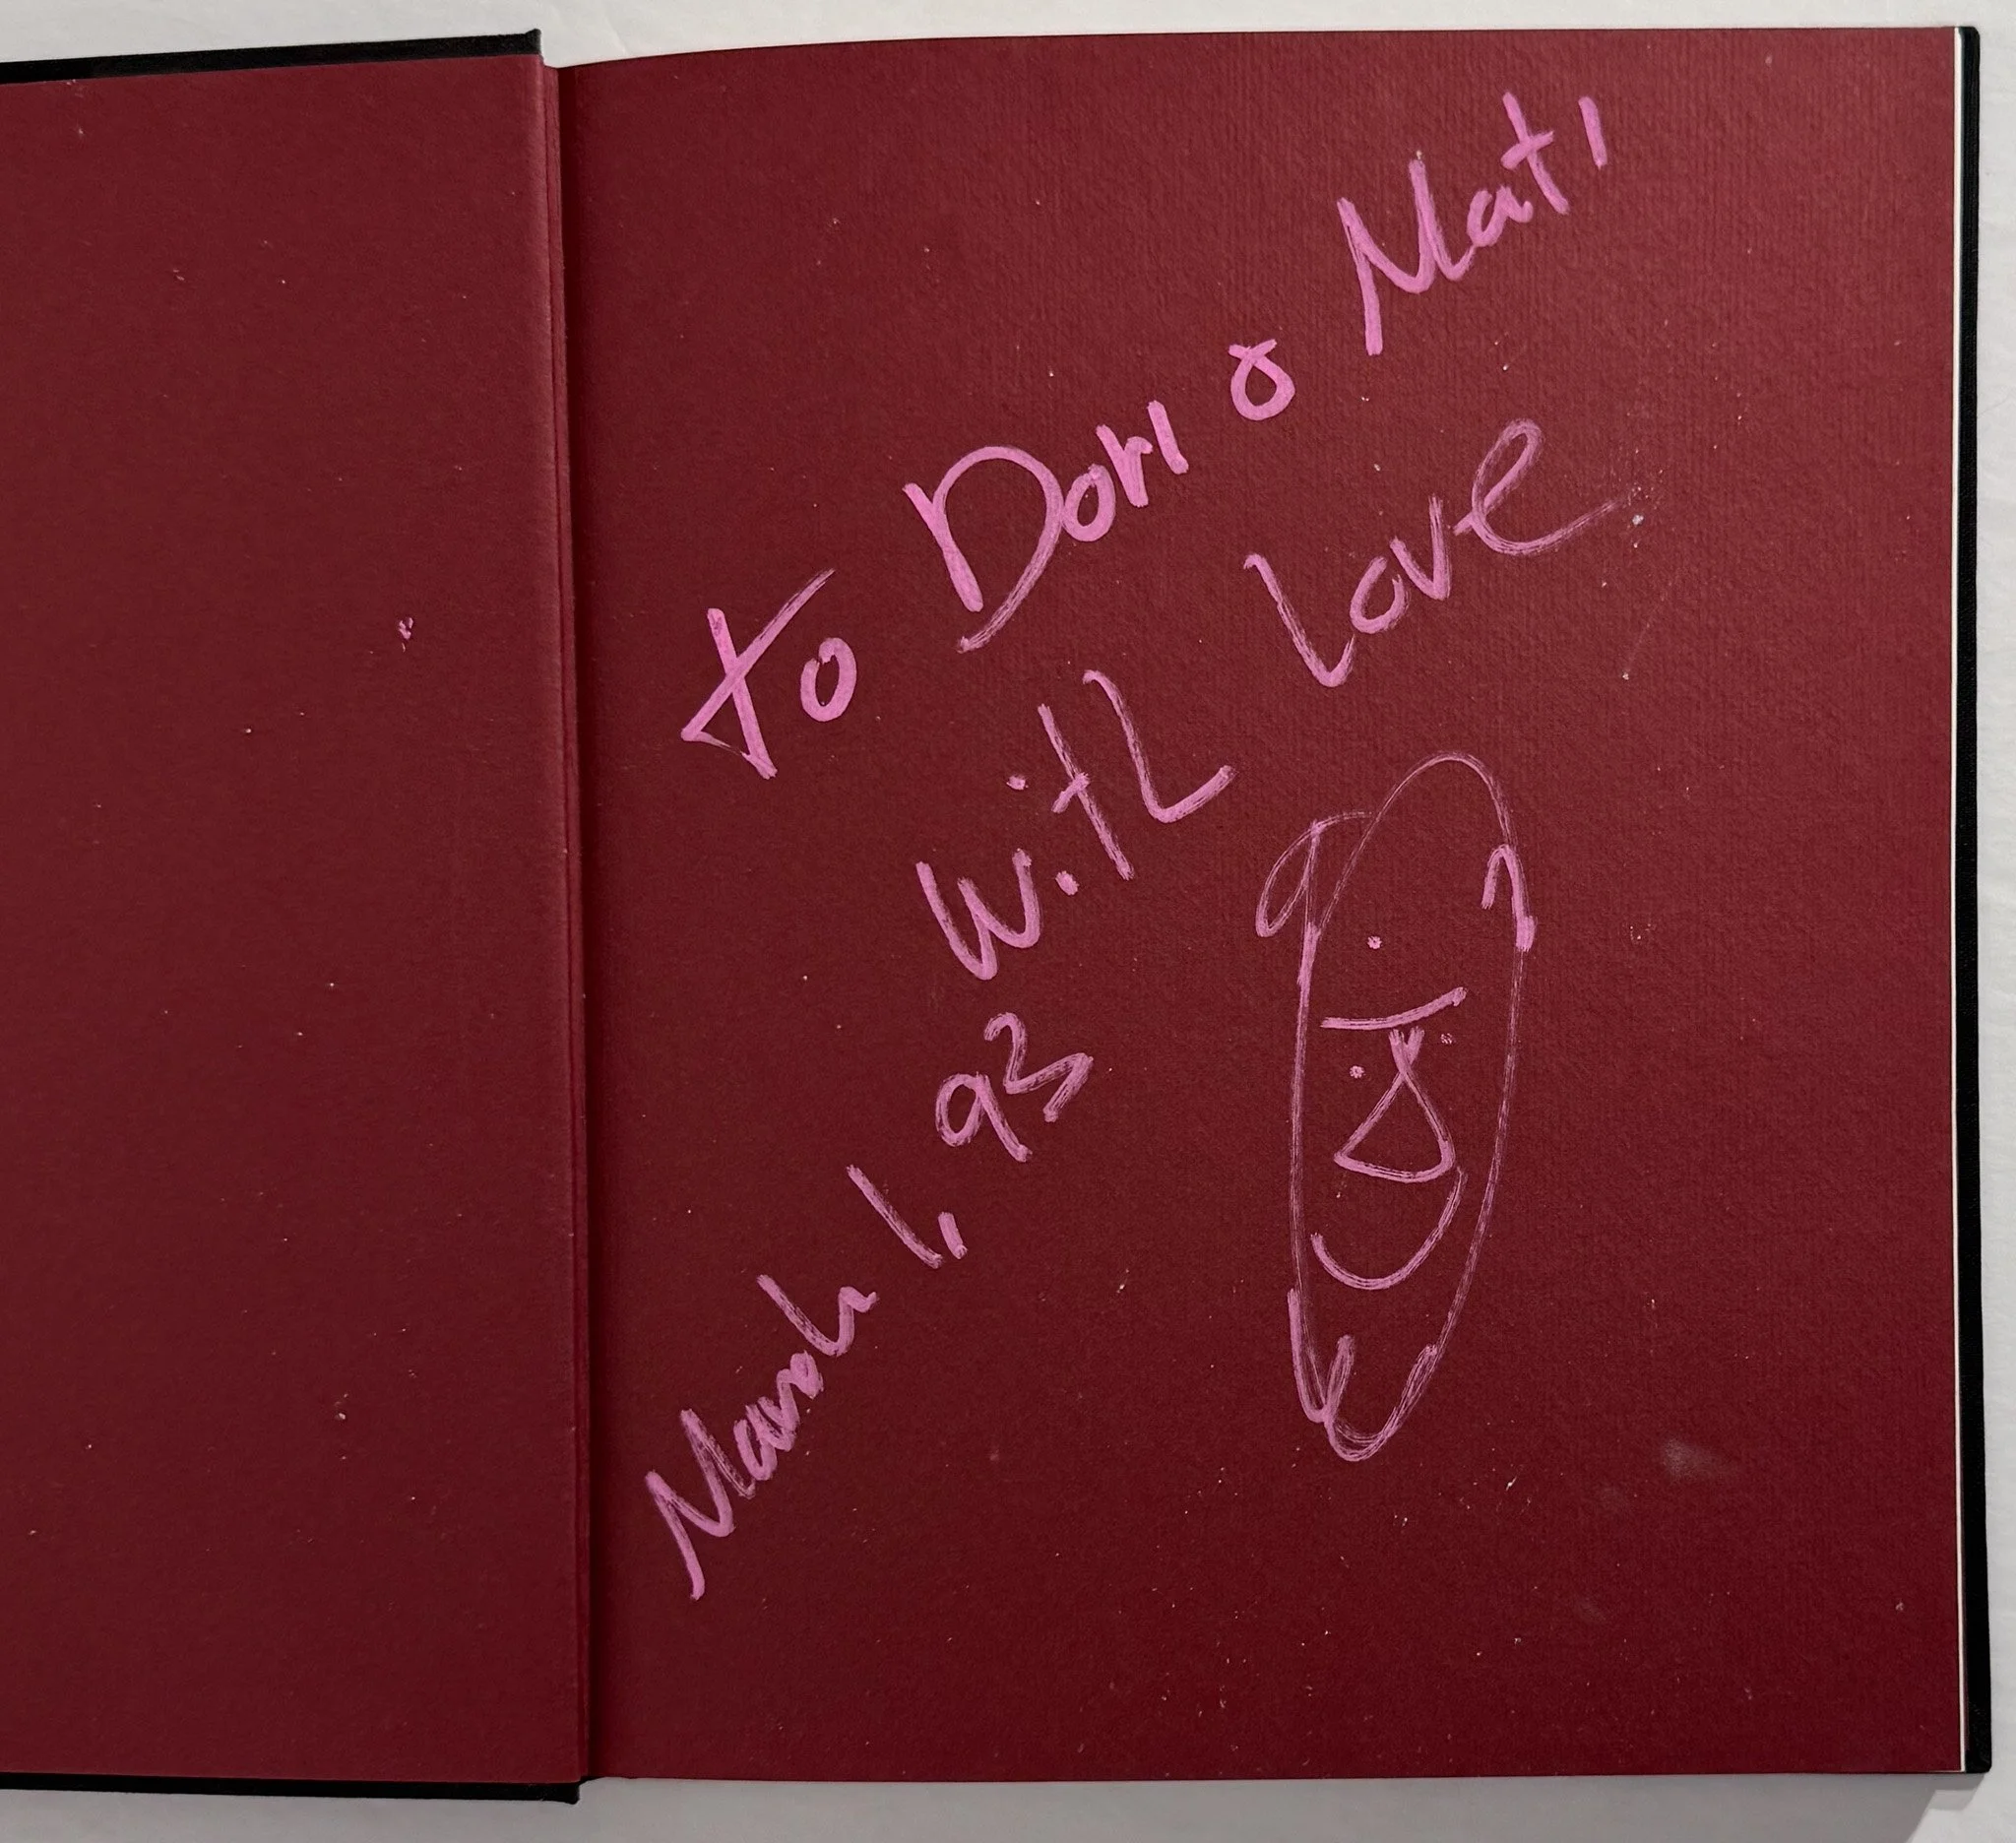 To Dori & Mati
With Love
March 1, 93